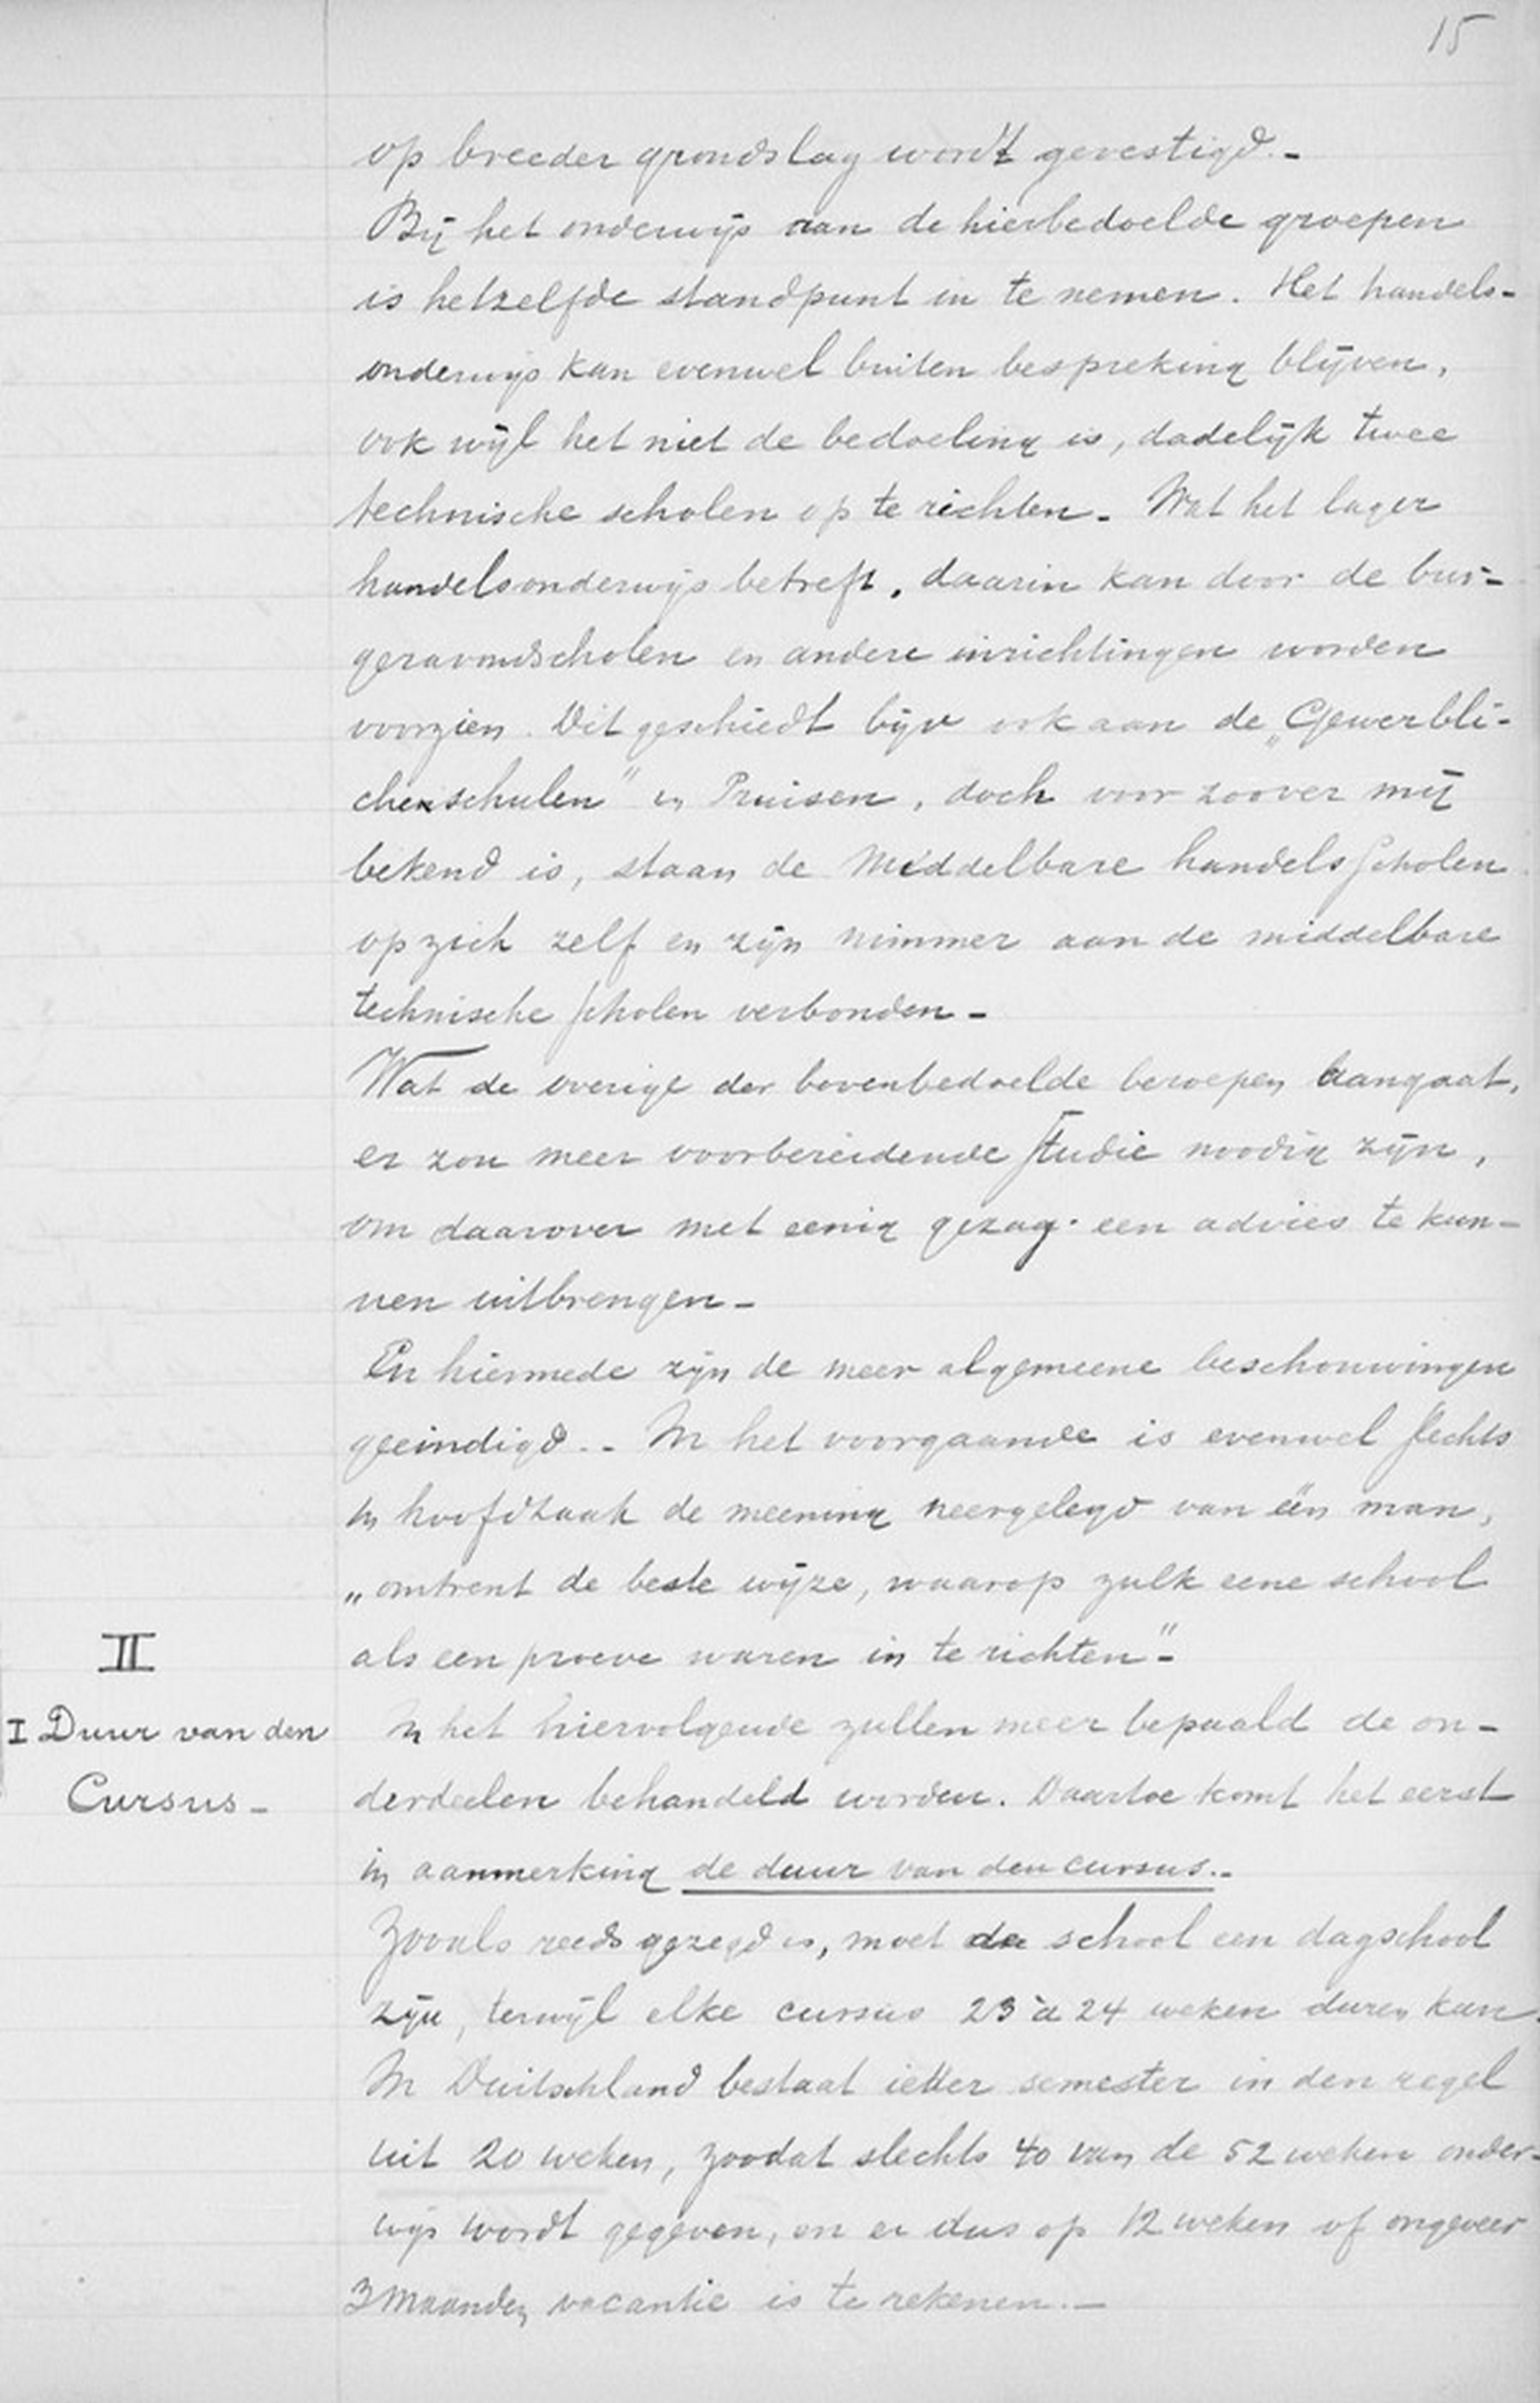 15
op breeder grondslag wordt gevestigd.-
Bij het onderwijs aan de hierbedoelde groepen
is hetzelfde standpunt in te nemen. Het handels-
onderwijs kan evenwel buiten bespreking blijven,
ook wijl het niet de bedoeling is, dadelijk twee
technische scholen op te richten - Wat het lager
handelsonderwijs betreft, daarin kan door de bur-
geravondscholen en andere inrichtingen worden
voorzien. Dit geschiedt bijv ook aan de „Gewerbli-
chenschulen" in Pruisen, doch voor zoover mij
bekend is, staan de Middelbare handelsscholen
op zich zelf en zijn nimmer aan de middelbare
technische scholen verbonden -
Wat de overige der bovenbedoelde beroepen aangaat,
er zou meer voorbereidende studie noodig zijn,
om daarover met eenig gezag een advies te kun-
nen uitbrengen -
En hiermede zijn de meer algemeene beschouwingen
geeindigd.- In het voorgaande is evenwel slechts
in hoofdzaak de meening neergelegd van één man,
„omtrent de beste wijze, waarop zulk eene school
als een proeve waren in te richten"-
II
I Duur van den
Cursus -
In het hiervolgende zullen meer bepaald de on-
derdeelen behandeld worden. Daartoe komt het eerst
in aanmerking de duur van den cursus.-
Zooals reeds gezegd is, moet de school een dagschool
zijn, terwijl elke cursus 23 à 24 weken duren kan.
In Duitschland bestaat ieder semester in den regel
uit 20 weken, zoodat slechts 40 van de 52 weken onder-
wijs wordt gegeven, en er dus op 12 weken of ongeveer
3 maanden vacantie is te rekenen.-